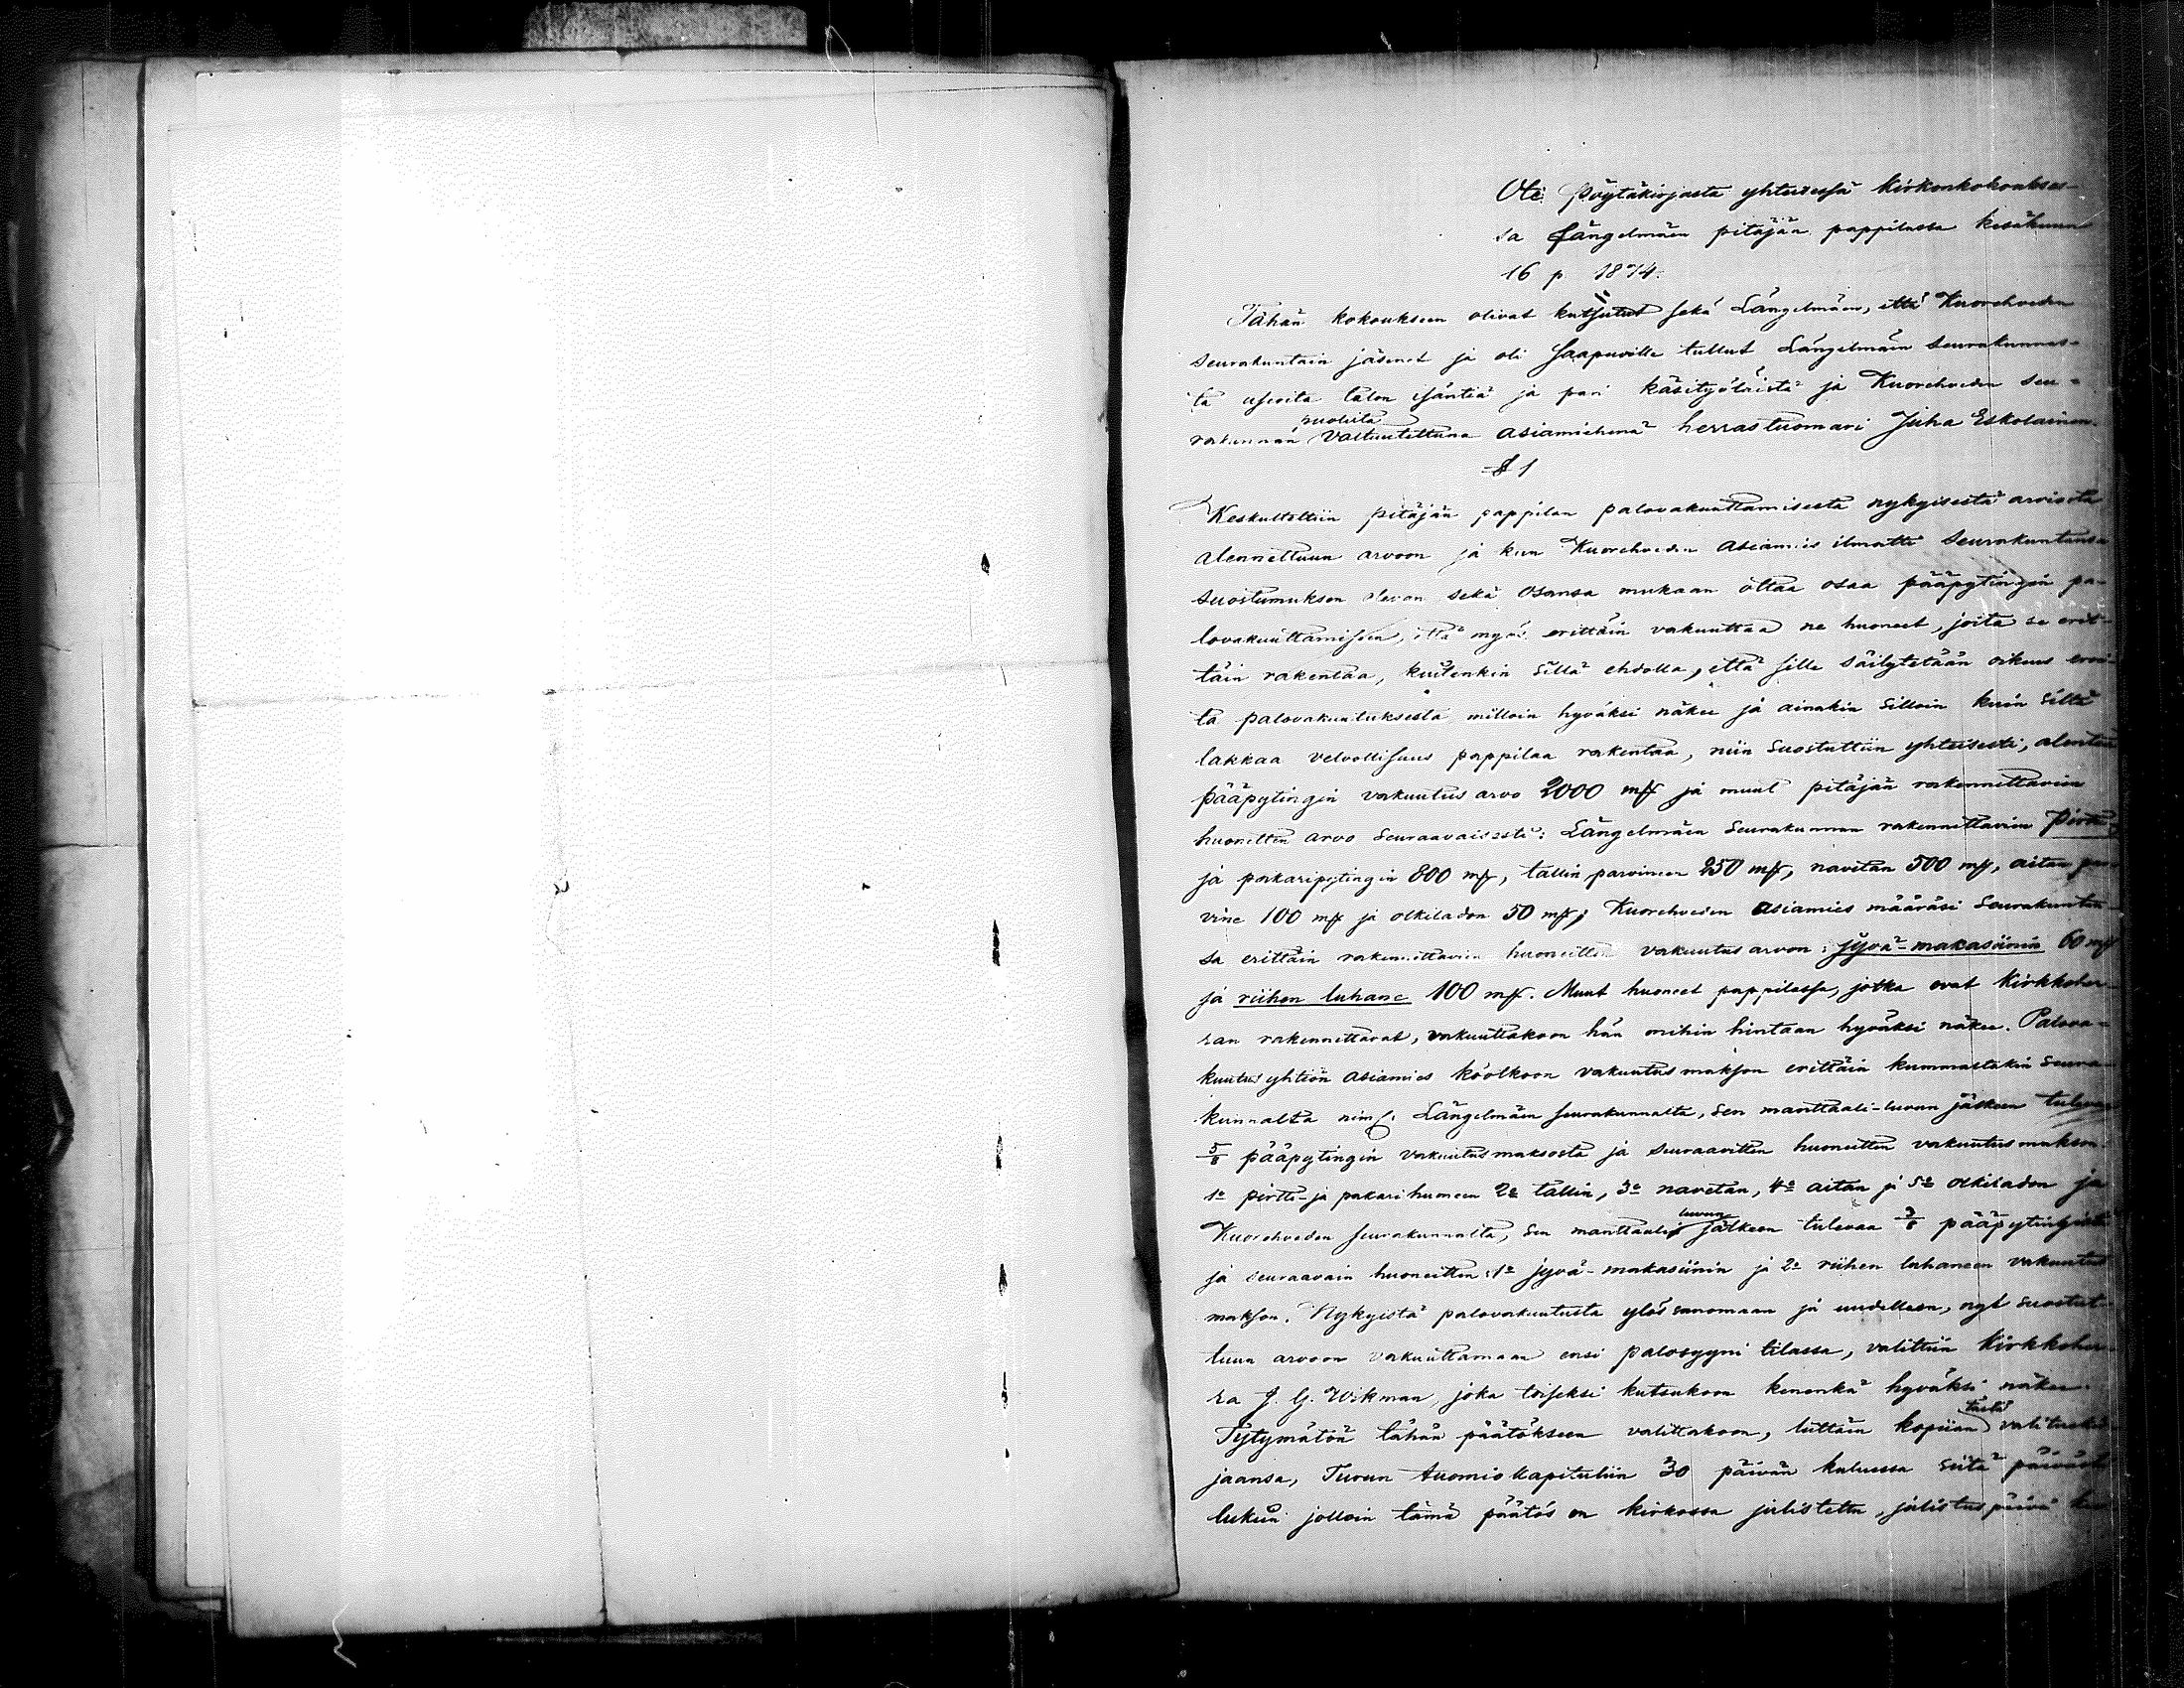 Ote pöytäkirjasta yhteisessä Kirkonkokoukses-
sa Längelmäen pitäjän pappilassa kesäkuun
16 p. 1874.
Tähän kokoukseen olivat kutsutut sekä Längelmäen, että Kuorehveden
seurakuntain jäsenet ja oli saapuville tullut Längelmäen seurakunnas-
ta useoita talon isäntiä ja pari käsityöläistä ja Kuorehveden seu-
rakunnan puolesta valtuutettuna asiamiehenä herrastuomari Juha Eskolainen.
§ 1
Keskusteltiin pitäjän pappilan palovakuuttamisesta nykyisestä arvosta
alennettuun arvoon ja kun Kuorehveden asiamies ilmoitti seurakuntansa
suostumuksen olevan sekä osansa mukaan ottaa osaa pääpytingin pa-
lovakuuttamiseen, että myös erittäin vakuuttaa ne huoneet, joita se erit-
täin rakentaa, kuitenkin sillä ehdolla, että sille säilytetään oikeus eroi-
ta palovakuutuksesta milloin hyväksi näkee ja ainakin silloin kuin siltä
lakkaa velvollisuus pappilaa rakentaa, niin suostuttiin yhteisesti, alentaa
pääpytingin vakuutus arvo 2000 mk ja muut pitäjän rakennettavien
huonetten arvo seuraavaisesti: Längelmäen seurakunnan rakennettavien Pirtin
ja pakaripytingin 800 mk, tallin parvineen 250 mk, navetan 500 mk, aitan par-
vine 100 mk ja olkiladon 50 mk; Kuorehveden asiamies määräsi seurakuntan-
sa erittäin rakennettavien huoneitten vakuutus arvon: jyvä-makasiinin 60 mk
ja riihen luhane 100 mk. Muut huoneet pappilassa, jotka ovat Kirkkoher-
ran rakennettavat, vakuuttakoon hän mihin hintaan hyväksi näkee. Palova-
kuutus yhtiön asiamies köötkoon vakuutus makson erittäin kummaltakin seura-
kunnalta nim. Längelmäen seurakunnalta, sen manttaali-luvun jälkeen tulevan
5/8 pääpytingin vakuutus maksosta ja seuraavitten huoneitten vakuutus makson:
1o pirtti- ja pakari huoneen 2o tallin, 3o navetan, 4o aitan ja 5o olkiladon ja
Kuorehveden seurakunnalta, sen manttaali luvun jälkeen tulevaa 3/8 pääpytingistä
ja seuraavain huoneitten: 1o jyvä-makasiinin ja 2o riihen luhaneen vakuutus
makson. Nykyistä palovakuutusta ylös sanomaan ja uudelleen, nyt suostut-
tuun arvoon vakuuttamaan ensi palosyyni tilassa, valittiin Kirkkoher-
ra J. G. Wikman, joka toiseksi kutsukoon kenenkä hyväksi näkee.
Tytymätöin tähän päätökseen valittakoon, liittäin kopiian tästä valituskir-
jaansa, Turun tuomio kapituliin 30 päivän kuluessa siitä päiväst
lukein jolloin tämä päätös on kirkossa julistettu, julistus päivä